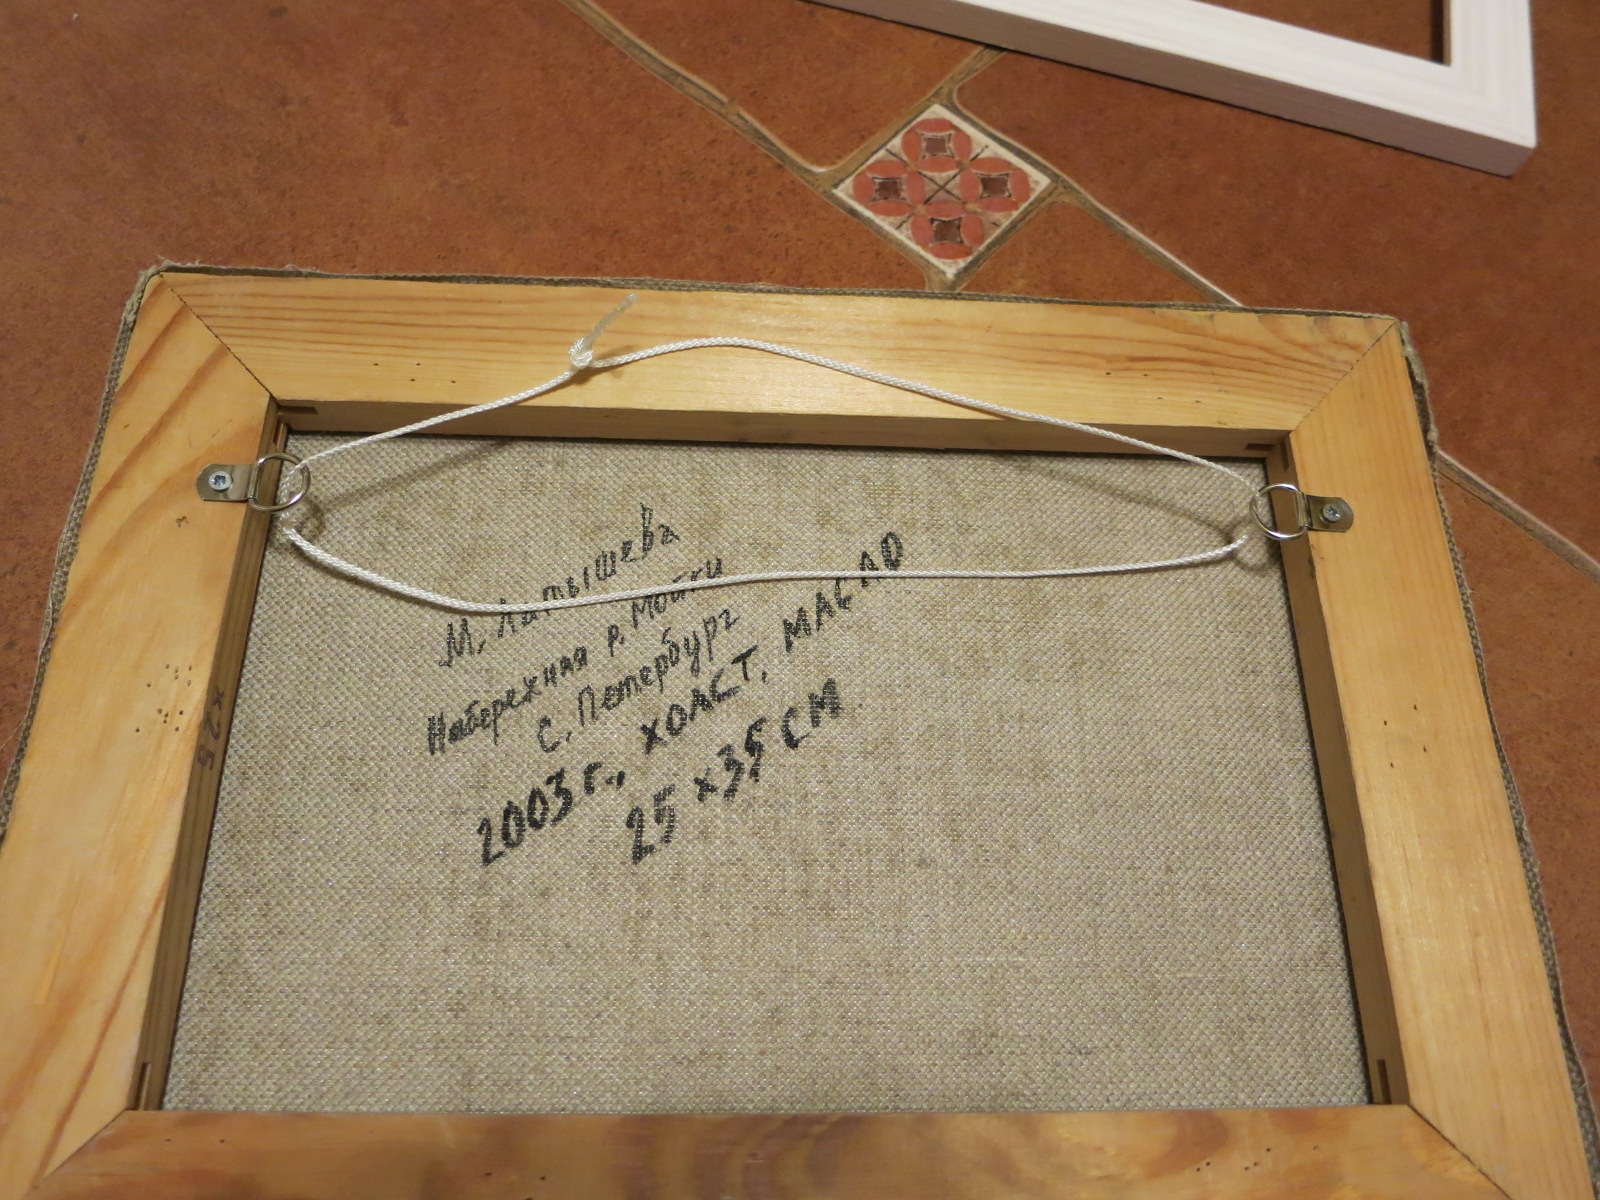 М. Латышева
Набережная р. Мойки
С. Петербург
2003 г., ХОЛСТ, МАСЛО
25 х 35 СМ
х 25